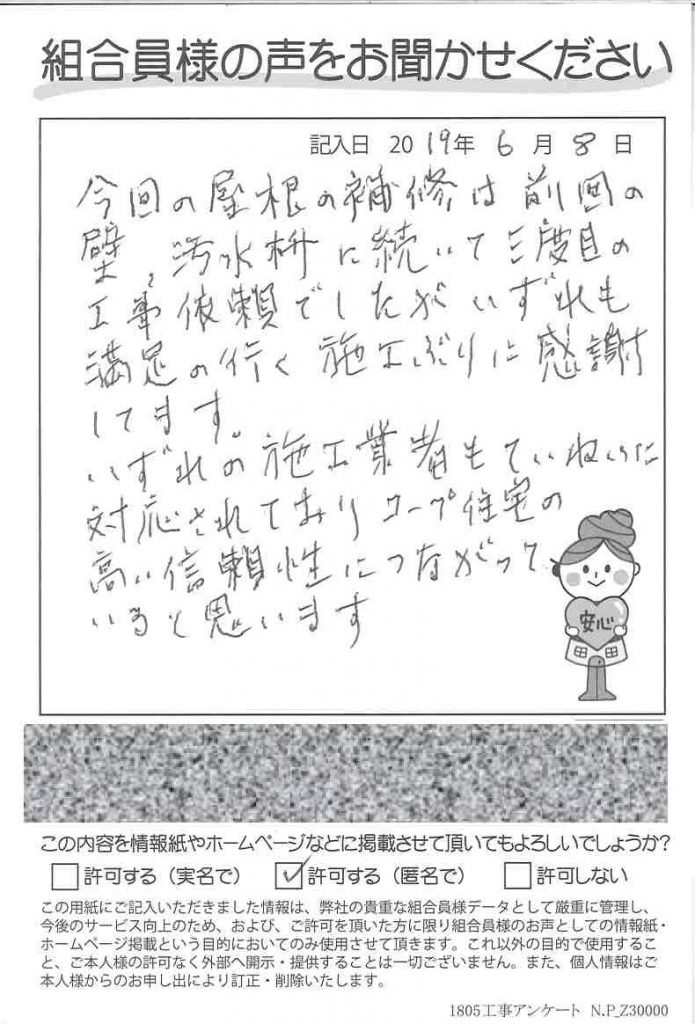 組合員様の声をお聞かせください
記入日 2019年 6月 8日
今回の屋根の補修は前回の
壁、汚水桝に続いて三度目の
工事依頼でしたがいずれも
満足の行く施工ぶりに感謝
してます。
いずれの施工業者もていねいに
対応されておりコープ住宅の
高い信頼性につながって
いると思います
安心
この内容を情報紙やホームページなどに掲載させて頂いてもよろしいでしょうか?
許可する(実名で) 許可する(匿名で) 許可しない
この用紙にご記入いただきました情報は、弊社の貴重な組合員様データとして厳重に管理し、
今後のサービス向上のため、および、ご許可を頂いた方に限り組合員様のお声としての情報紙・
ホームページ掲載という目的においてのみ使用させて頂きます。これ以外の目的で使用するこ
と、ご本人様の許可なく外部へ開示・提供することは一切ございません。また、個人情報はご
本人様からのお申し出により訂正・削除いたします。
1805工事アンケート N.P_Z30000